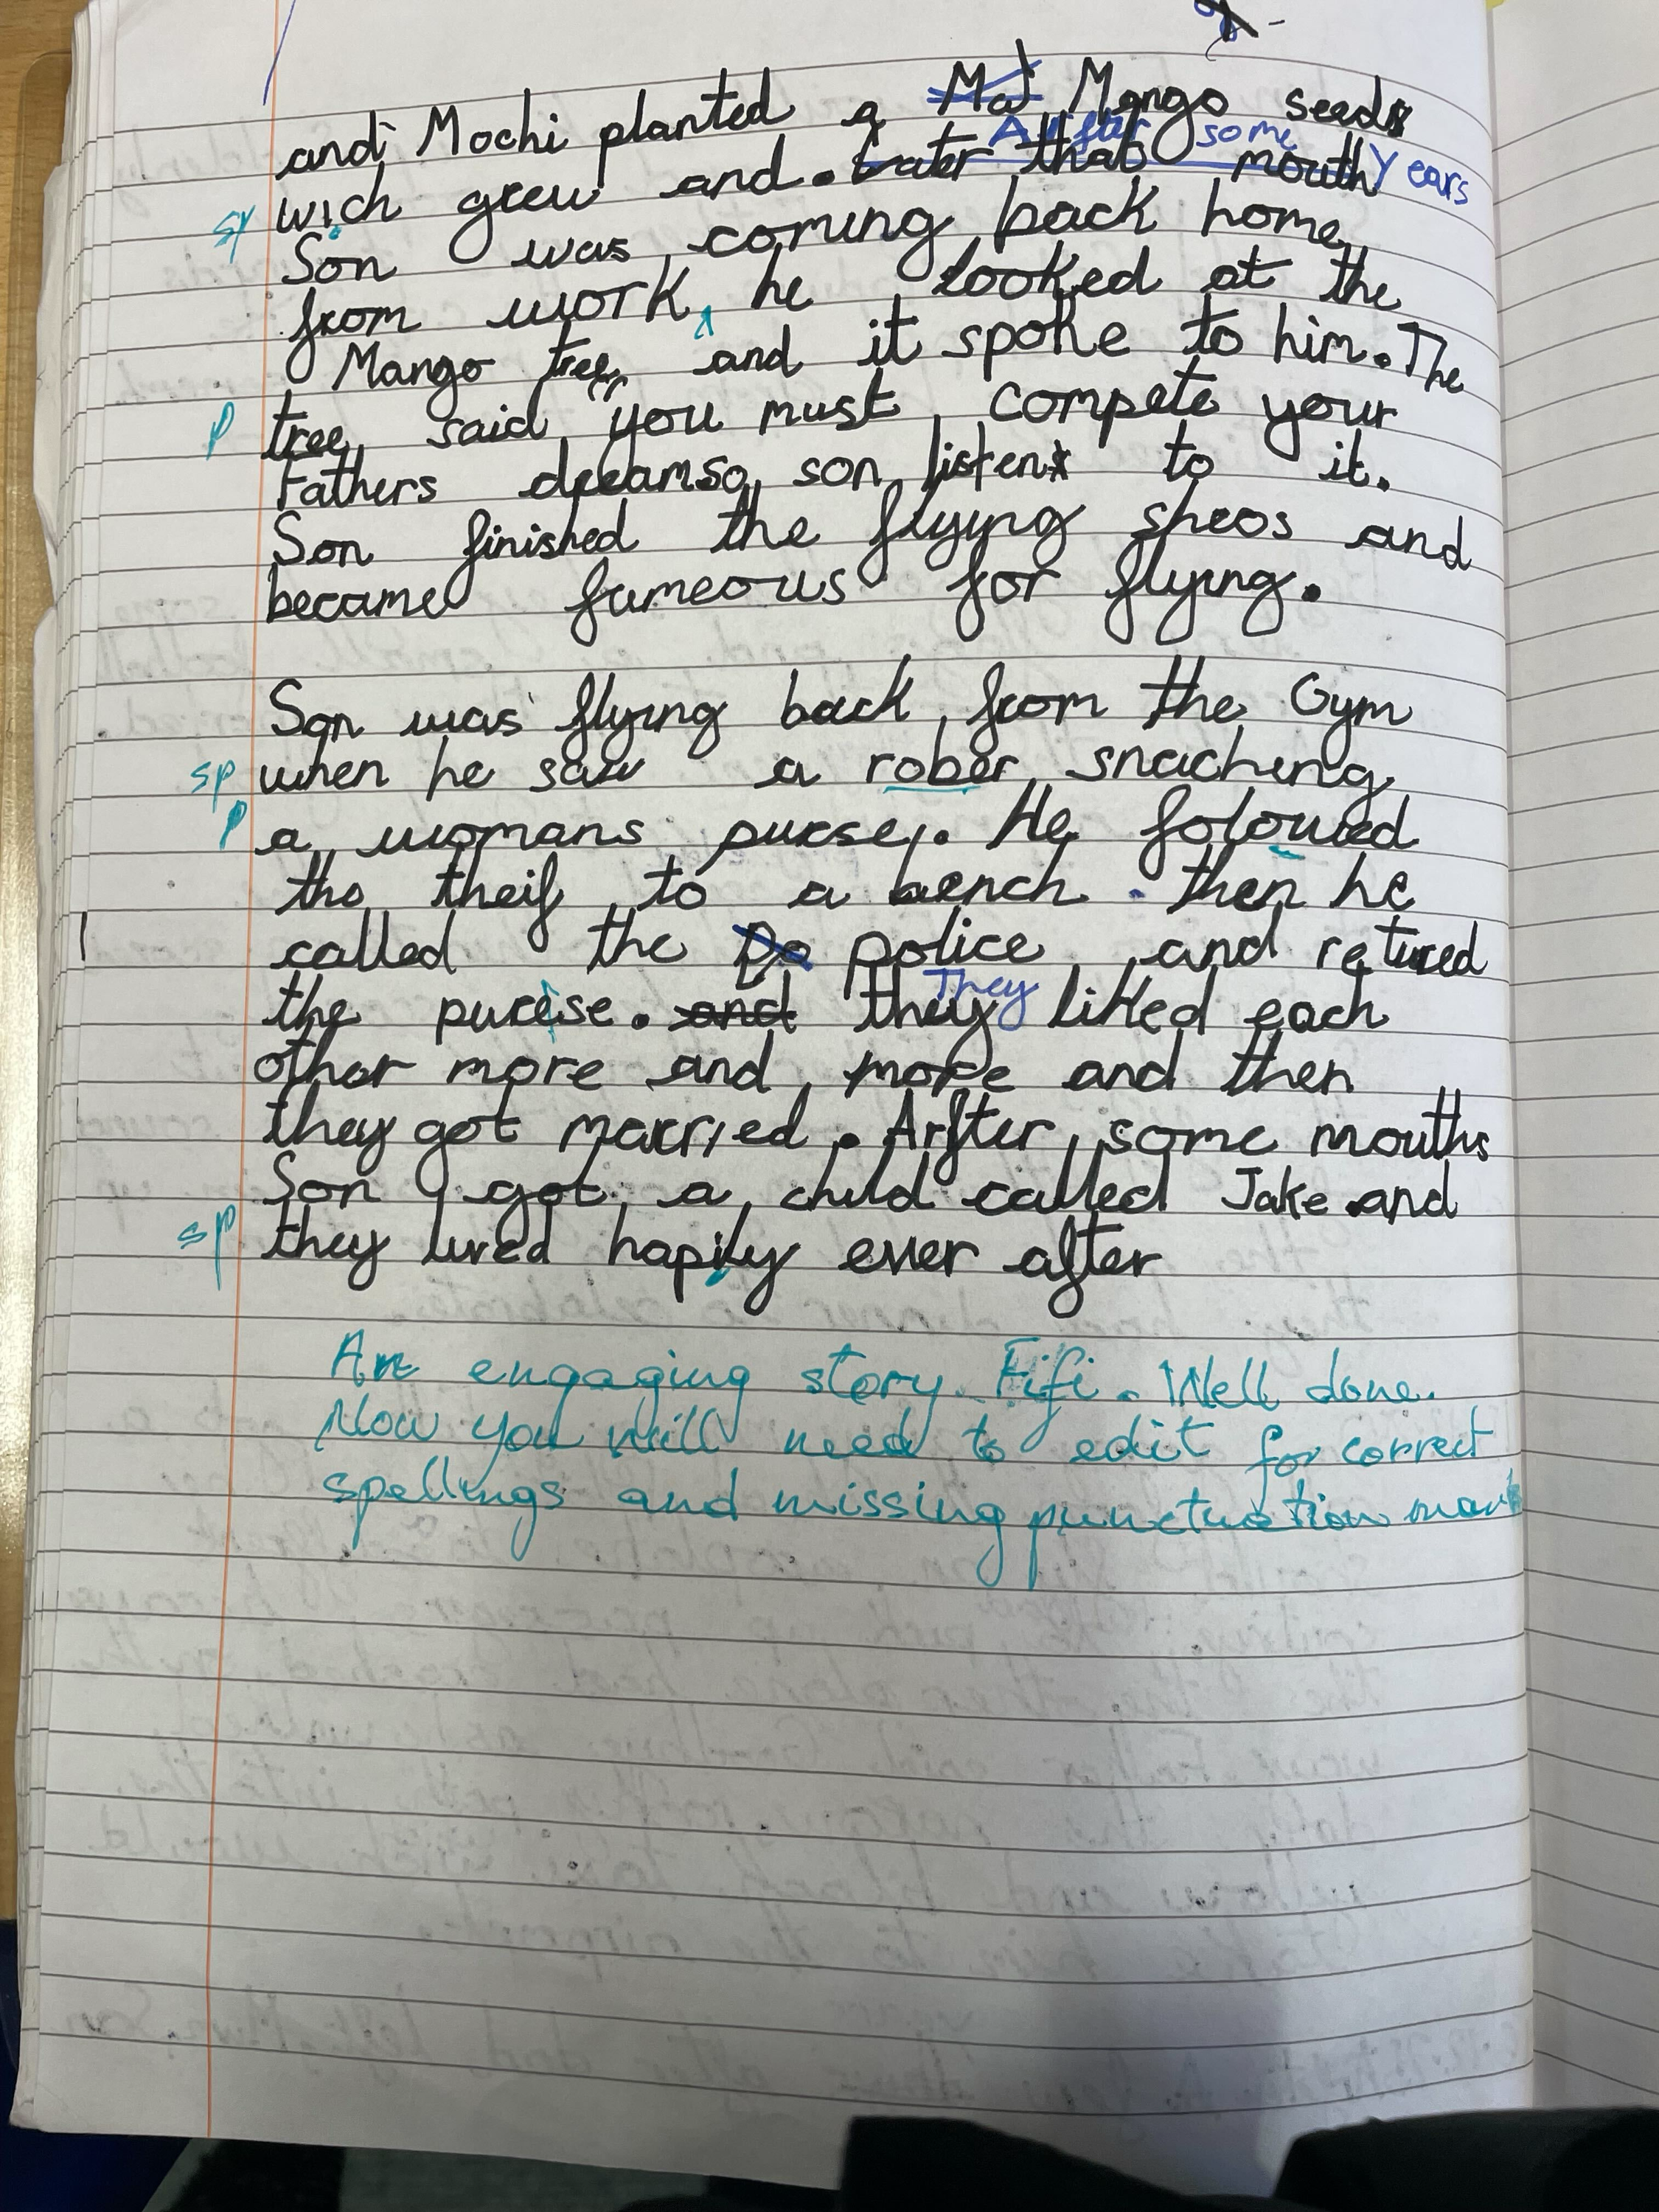 and Mochi planted a Mango seed
After some Years
sp wich grew and. Later that mouth
Son was coming back home
from work, he looked at the
Mango tree, and it spoke to him. The
p tree, said "you must, compete your
Fathers dream so, son, listen to it.
Son finished the flying sheos and
became fameous for flying.
Son was flying back from the Gym
sp when he saw a rober snaching
p a womans purse. He folowed
the theif to a bench. then he
called the Po police and retured
They
the purse. and they liked each
other more and more and then
they got married. Arfter some mouths
Son got a child called Jake and
sp they lived hapily ever after
An engaging story Fifi. Well done.
Now you will need to edit for correct
spellings and missing punctuation mark